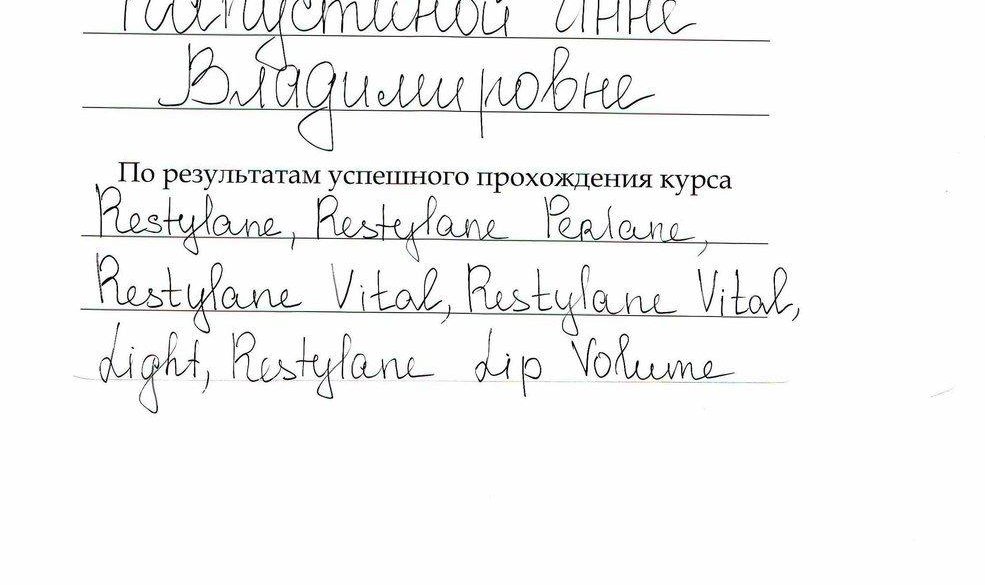 Капустиной Инне
Владимировне
По результатам успешного прохождения курса
Restylane, Restylane Perlane,
Restylane Vital, Restylane Vital,
Light, Restylane Lip Volume